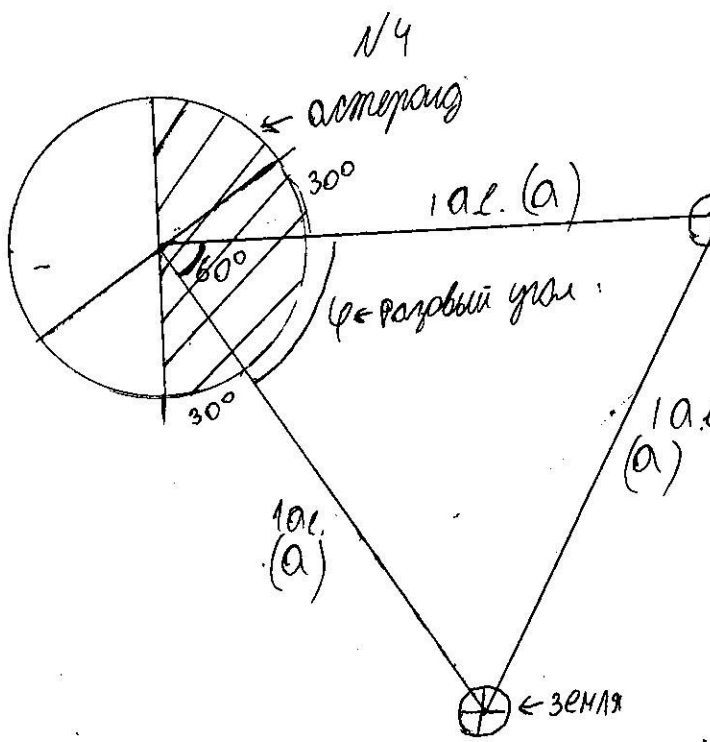 N4
← астероид
30°
1 а.е. (a)
60°
φ ← фазовый угол
30°
1 а.е
(a)
1 а.е.
(a)
← земля